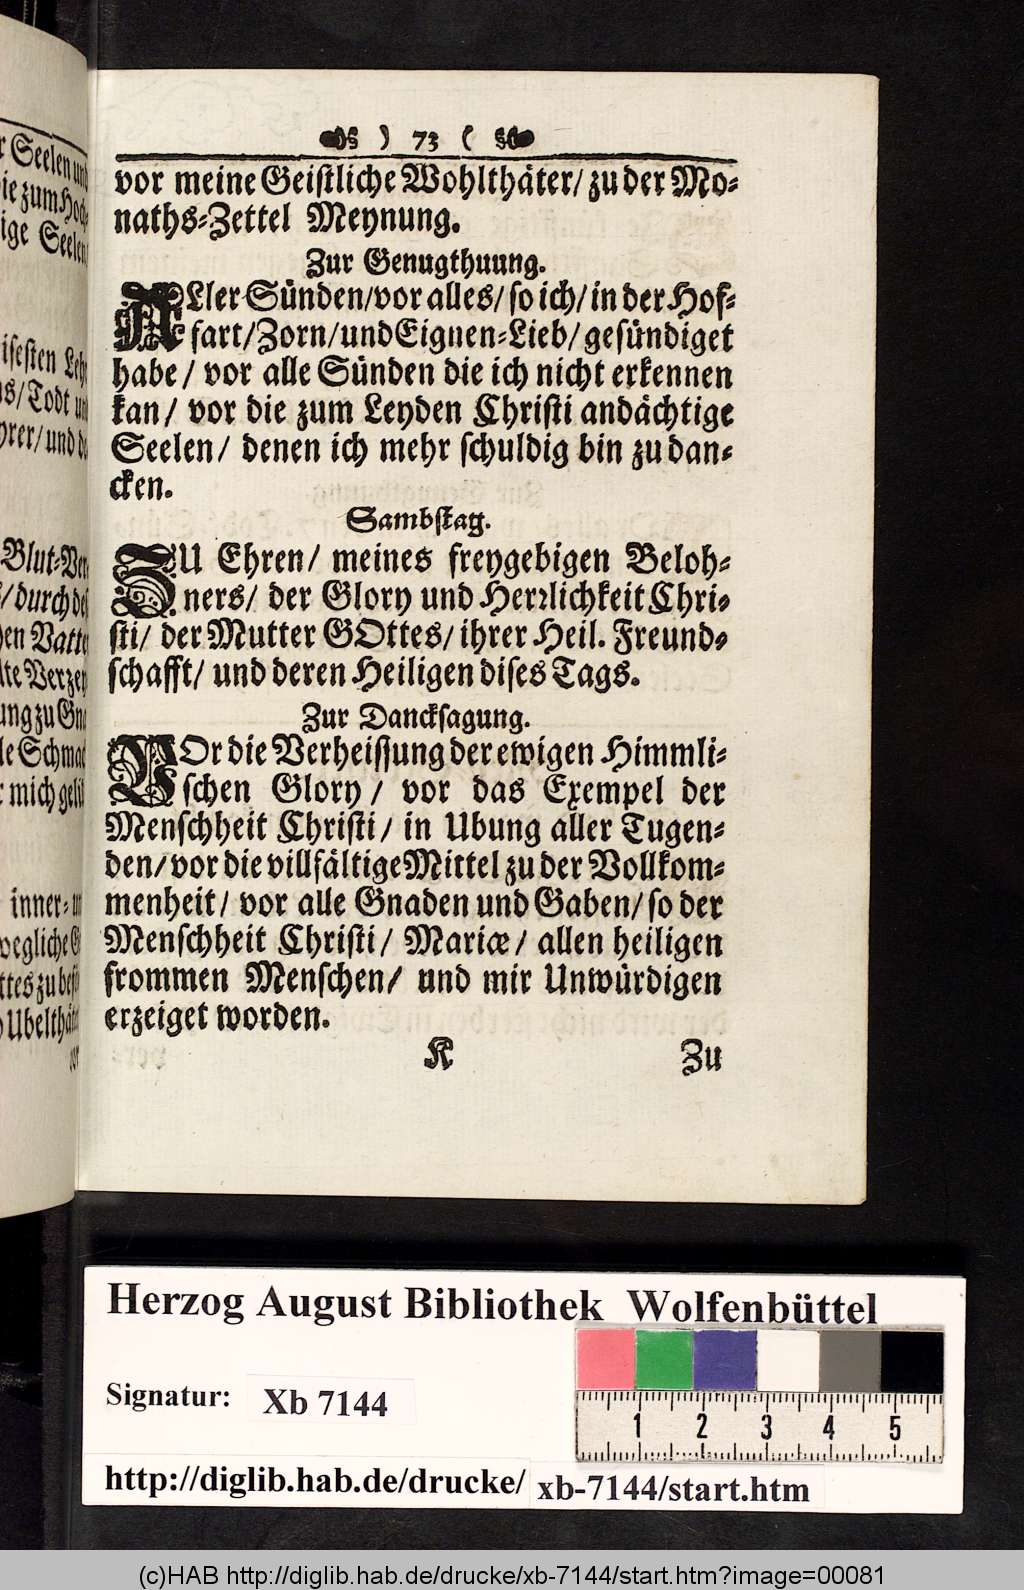 ) 73 (
vor meine Geistliche Wohlthäter/ zu der Mo-
naths-Zettel Meynung.
Zur Genugthuung.
ALler Sünden/ vor alles/ so ich/ in der Hof-
fart/ Zorn/ und Eignen-Lieb/ gesündiget
habe/ vor alle Sünden die ich nicht erkennen
kan/ vor die zum Leyden Christi andächtige
Seelen/ denen ich mehr schuldig bin zu dan-
cken.
Sambstag.
ZU Ehren/ meines freygebigen Beloh-
ners/ der Glory und Herrlichkeit Chri-
sti/ der Mutter GOttes/ ihrer Heil. Freund-
schafft/ und deren Heiligen dises Tags.
Zur Dancksagung.
VOr die Verheissung der ewigen Himmli-
schen Glory/ vor das Exempel der
Menschheit Christi/ in Ubung aller Tugen-
den/ vor die villfältige Mittel zu der Vollkom-
menheit/ vor alle Gnaden und Gaben/ so der
Menschheit Christi/ Mariæ/ allen heiligen
frommen Menschen/ und mir Unwürdigen
erzeiget worden.
K Zu
Seelen und
zum Hoch-
ige Seelen
Todt
und
Blut-Ver
durch
Vatte
zu
Schmac
mich
inner-
zu
Ubelthä
Herzog August Bibliothek Wolfenbüttel
Signatur: Xb 7144
1 2 3 4 5
http://diglib.hab.de/drucke/ xb-7144/start.htm
(c)HAB http://diglib.hab.de/drucke/xb-7144/start.htm?image=00081